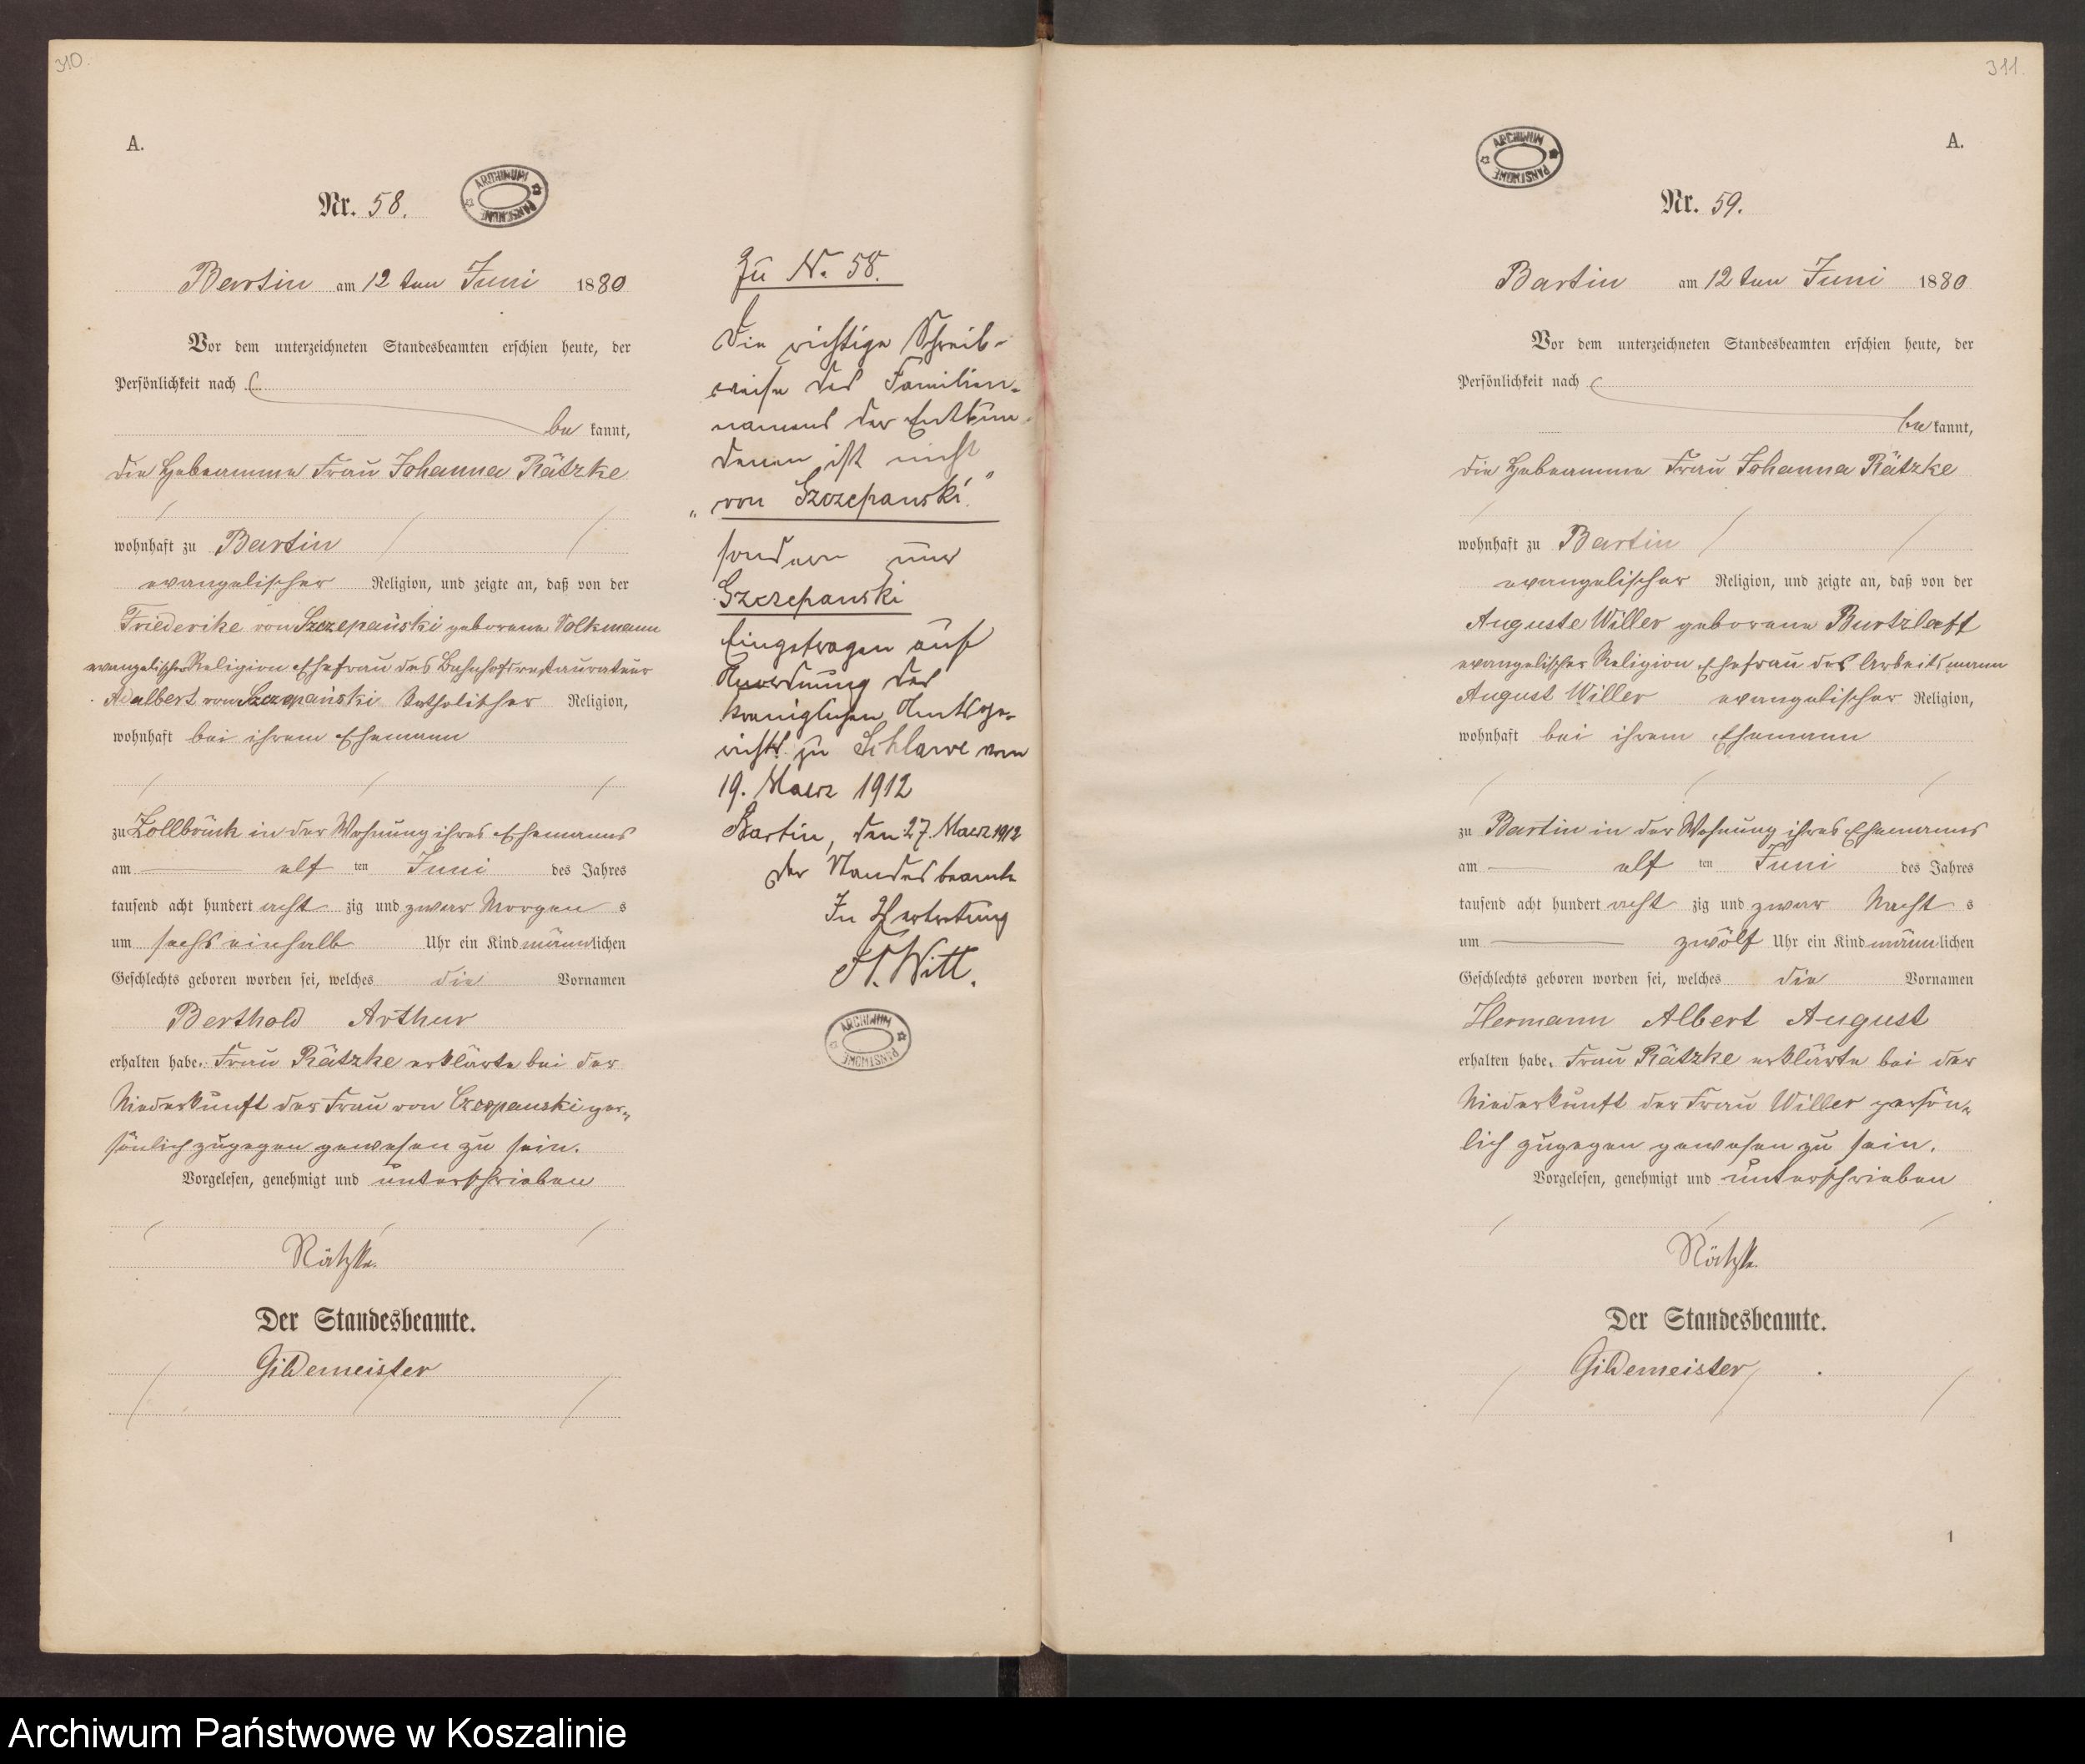 310.
A.
Nr. 58.
ARCHIWUM PAŃSTWOWE
Bartin am 12 ten Juni 1880
Vor dem unterzeichneten Standesbeamten erschien heute, der
Persönlichkeit nach
be kannt,
die Hebeamme Frau Johanna Rätzke
wohnhaft zu Bartin
evangelischer Religion, und zeigte an, daß von der
Friederike von Szczepański geborene Volkmann
evangelischer Religion Ehefrau des Bahnhofsrestaurateur
Adalbert von Szczepański katholischer Religion,
wohnhaft bei ihrem Ehemann
zu Zollbrück in der Wohnung ihres Ehemanns
am elf ten Juni des Jahres
tausend acht hundert acht zig und zwar Morgen s
um sechs einhalb Uhr ein Kind männlichen
Geschlechts geboren worden sei, welches die Vornamen
Berthold Arthur
erhalten habe. Frau Rätzke erklärte bei der
Niederkunft der Frau von Czespanski per„
sönlich zugegen gewesen zu sein.
Vorgelesen, genehmigt und unterschrieben
Rätzke.
Der Standesbeamte.
Gildemeister
Zu N. 58.
Die richtige Schreib-
weise des Familien-
namens der Entbun-
denen ist nicht
„von Szczepanski"
sondern nur
Szczepanski
Eingetragen auf
Anordnung des
Koeniglichen Amtsge-
richts zu Schlawe vom
19. Maerz 1912
Bartin, den 27. Maerz 1912
Der Standesbeamte
In Vertretung
Witt.
ARCHIWUM PAŃSTWOWE
311.
A.
ARCHIWUM PAŃSTWOWE
Nr. 59.
Bartin am 12 ten Juni 1880
Vor dem unterzeichneten Standesbeamten erschien heute, der
Persönlichkeit nach
be kannt,
die Hebeamme Frau Johanna Rätzke
wohnhaft zu Bartin
evangelischer Religion, und zeigte an, daß von der
Auguste Willer geborene Burtzlaff
evangelischer Religion Ehefrau des Arbeitsmann
August Willer evangelischer Religion,
wohnhaft bei ihrem Ehemann
zu Bartin in der Wohnung ihres Ehemanns
am elf ten Juni des Jahres
tausend acht hundert acht zig und zwar Nacht s
um zwölf Uhr ein Kind männlichen
Geschlechts geboren worden sei, welches die Vornamen
Hermann Albert August
erhalten habe. Frau Rätzke erklärte bei der
Niederkunft der Frau Willer persön„
lich zugegen gewesen zu sein.
Vorgelesen, genehmigt und unterschrieben
Rätzke.
Der Standesbeamte.
Gildemeister
1
Archiwum Państwowe w Koszalinie